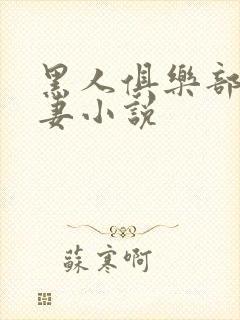 黑人俱樂部
妻小說
蘇寒啊